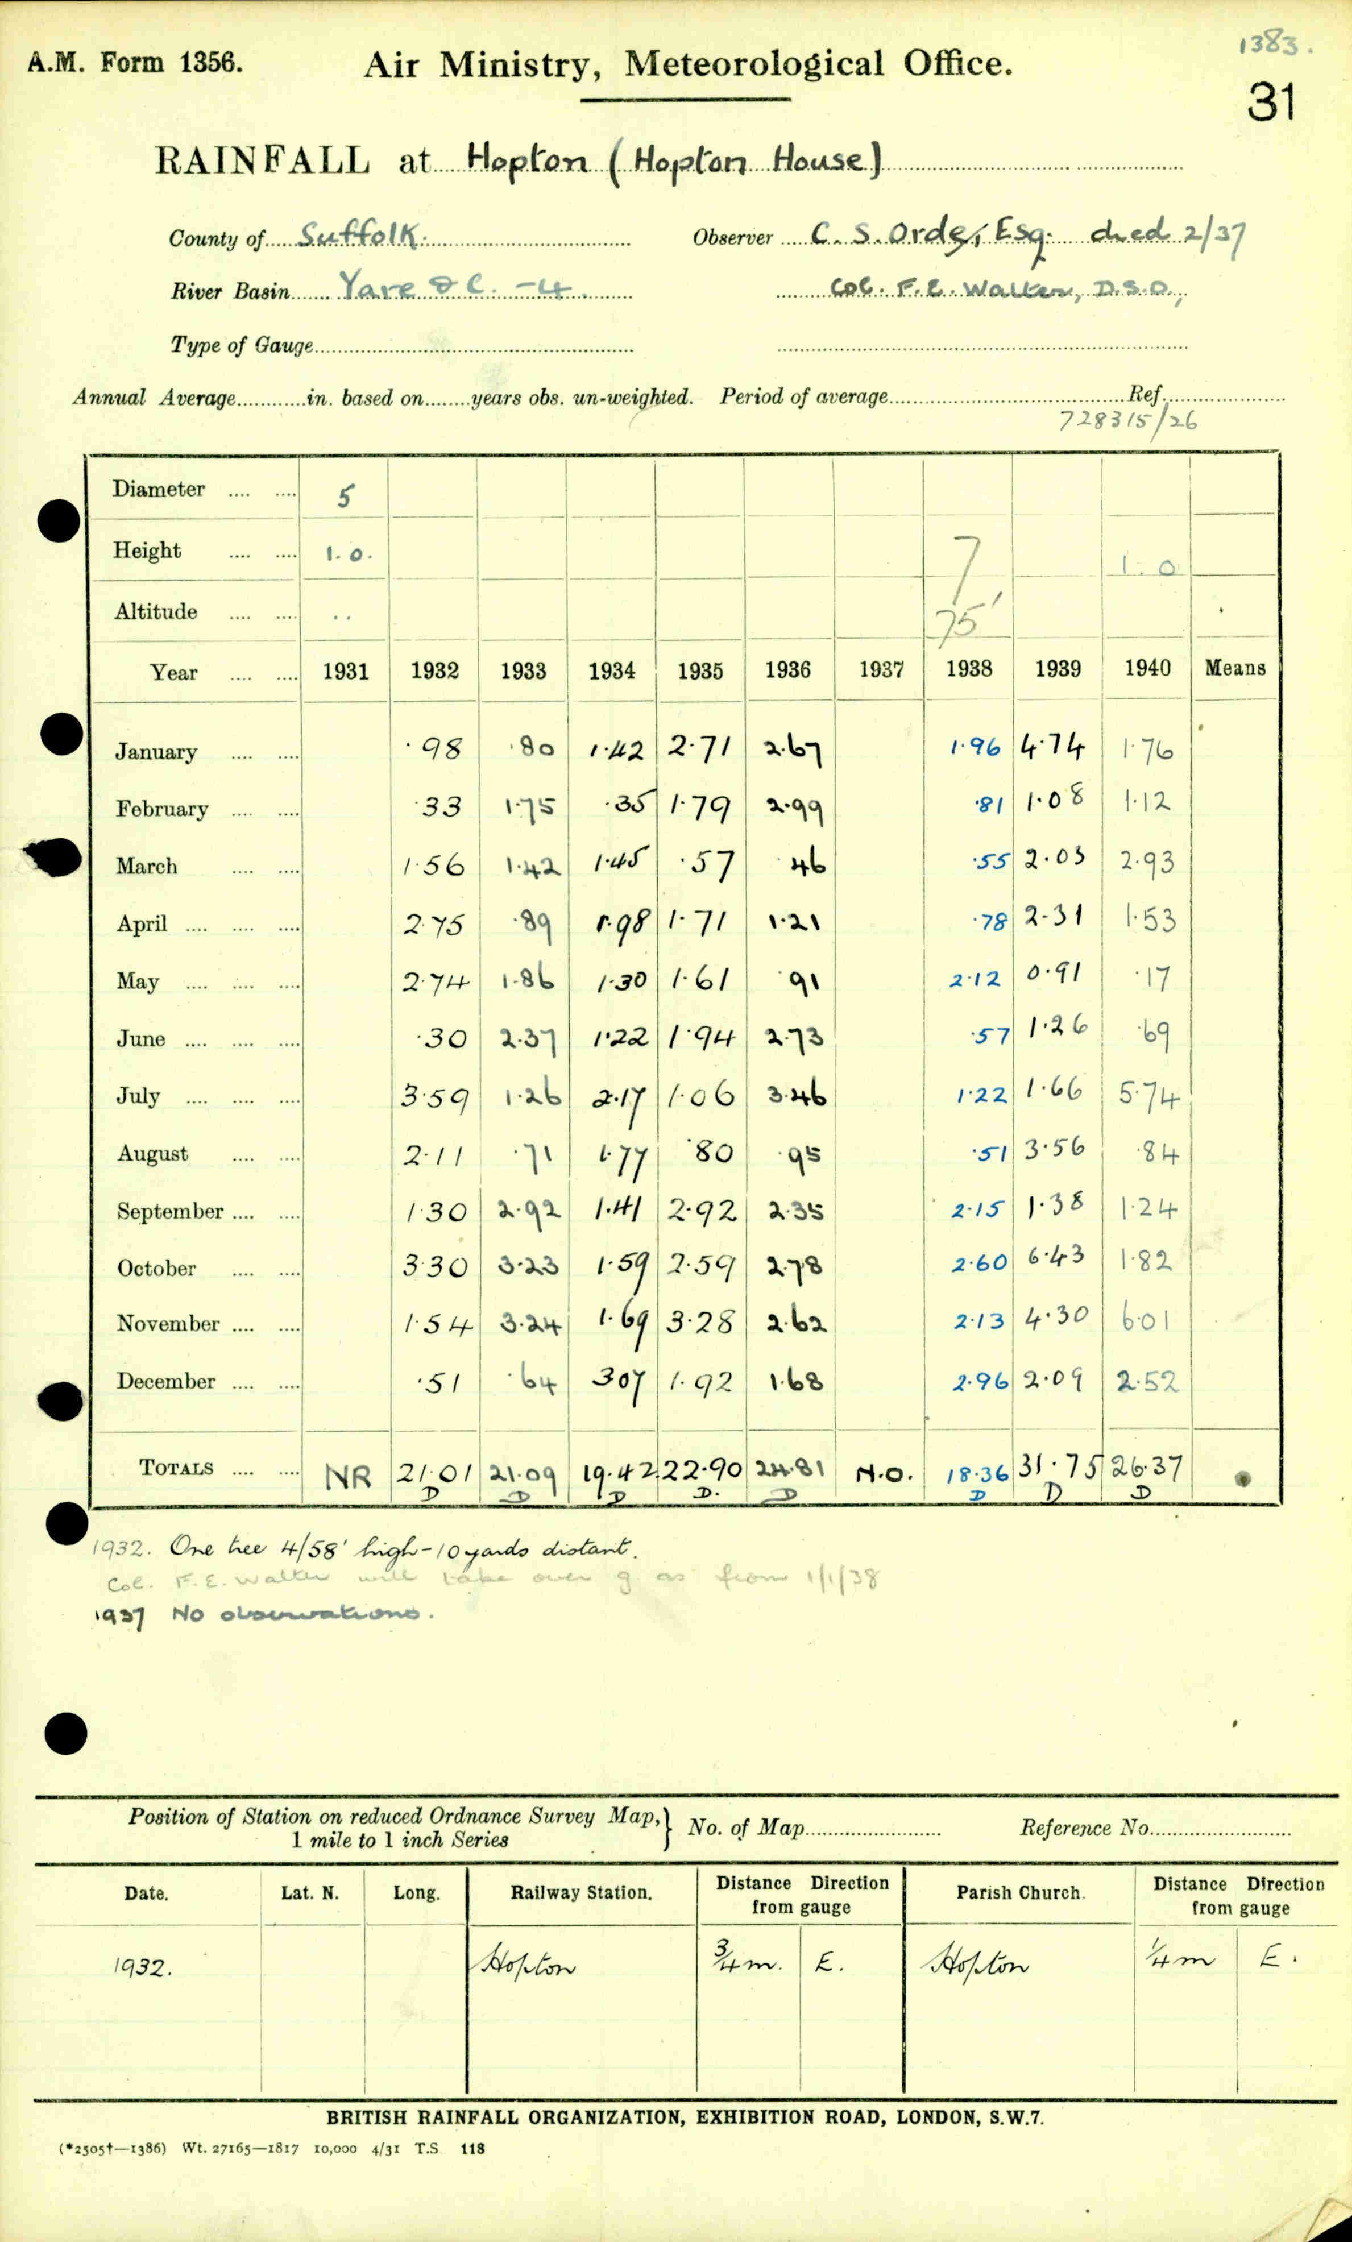 1383.
A.M. Form 1356. Air Ministry, Meteorological Office.
31
RAINFALL at Hopton (Hopton House)
County of Suffolk. Observer C. S. Orde, Esq. died 2/37
River Basin Yare & C. -4. Col. F. E. Walker, D.S.O.,
Type of Gauge
Annual Average in. based on years obs. un-weighted. Period of average Ref.
728315/26
Diameter 5
Height 1.0. 7 1.0
Altitude .. 75'
Year 1931 1932 1933 1934 1935 1936 1937 1938 1939 1940 Means
January ·98 ·80 1·42 2·71 2·67 1·96 4·74 1·76
February ·33 1·75 ·35 1·79 2·99 ·81 1·08 1·12
March 1·56 1·42 1·45 ·57 46 ·55 2·03 2·93
April 2·75 ·89 1·98 1·71 1·21 ·78 2·31 1·53
May 2·74 1·86 1·30 1·61 ·91 2·12 0·91 ·17
June ·30 2·37 1·22 1·94 2·73 ·57 1·26 ·69
July 3·59 1·26 2·17 1·06 3·46 1·22 1·66 5·74
August 2·11 ·71 1·77 ·80 ·95 ·51 3·56 ·84
September 1·30 2·92 1·41 2·92 2·35 2·15 1·38 1·24
October 3·30 3·23 1·59 2·59 2·78 2·60 6·43 1·82
November 1·54 3·24 1·69 3·28 2·62 2·13 4·30 6·01
December ·51 ·64 3·07 1·92 1·68 2·96 2·09 2·52
TOTALS NR 21·01 21·09 19·42 22·90 24·81 N.O. 18·36 31·75 26·37
D D D D. D D D D
1932. One tree 4/58' high - 10 yards distant.
Col. F. E. Walker will take over g as from 1/1/38
1937 No observations.
Position of Station on reduced Ordnance Survey Map, } No. of Map Reference No.
1 mile to 1 inch Series
Date. Lat. N. Long. Railway Station. Distance Direction from gauge Parish Church. Distance Direction from gauge
1932. Hopton ¾ m. E. Hopton ¼ m E.
BRITISH RAINFALL ORGANIZATION, EXHIBITION ROAD, LONDON, S.W.7.
(*2505†—1386) Wt. 27165—1817 10,000 4/31 T.S 118